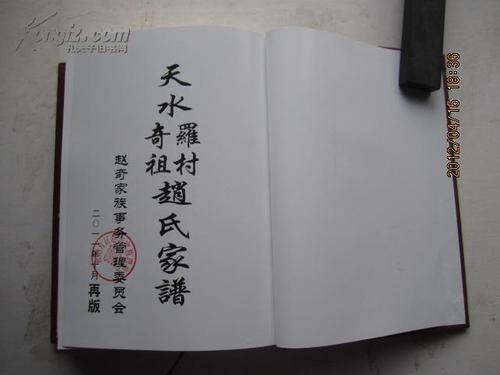 天水羅村奇祖趙氏家譜
赵奇家族事务管理委员会
二〇一一年十月再版
Kongfz.com
孔夫子旧书网
2012/04/15 18:36